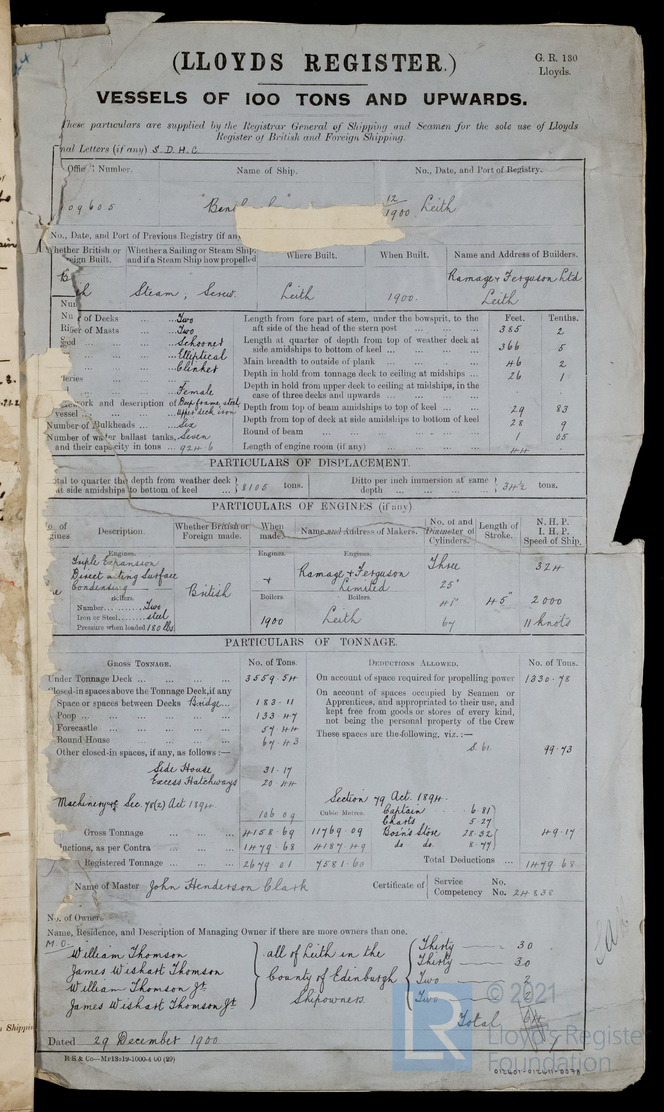 G. R. 130
Lloyds.
(LLOYDS REGISTER.)
VESSELS OF 100 TONS AND UPWARDS.
These particulars are supplied by the Registrar General of Shipping and Seamen for the sole use of Lloyds
Register of British and Foreign Shipping.
nal Letters (if any) S.D.H.C.
Offic l Number. Name of Ship. No., Date, and Port of Registry.
09605 "Ben 12/1900 Leith
No., Date, and Port of Previous Registry (if any
Whether British or eign Built. Whether a Sailing or Steam Ship, and if a Steam Ship how propelled Where Built. When Built. Name and Address of Builders.
Steam, Screw. Leith 1900. Ramage & Ferguson Ltd
Leith
Feet. Tenths.
of Decks ... Two
of Masts ... Two
Schooner
Elliptical
Clinker
Female
ework and description of Deep frame, steel
vessel ... Upper deck iron
Number of Bulkheads ... Six
Number of water ballast tanks, Seven
and their capacity in tons ... 924.6
Length from fore part of stem, under the bowsprit, to the
aft side of the head of the stern post ... 385 2
Length at quarter of depth from top of weather deck at
side amidships to bottom of keel ... 366 5
Main breadth to outside of plank ... 46 2
Depth in hold from tonnage deck to ceiling at midships ... 26 1
Depth in hold from upper deck to ceiling at midships, in the
case of three decks and upwards ...
Depth from top of beam amidships to top of keel ... 29 83
Depth from top of deck at side amidships to bottom of keel 28 9
Round of beam ... 1 05
Length of engine room (if any) ... 44
PARTICULARS OF DISPLACEMENT.
otal to quarter the depth from weather deck
at side amidships to bottom of keel ... 8105 tons.
Ditto per inch immersion at same
depth ... 34½ tons.
PARTICULARS OF ENGINES (if any)
o. of gines Description. Whether British or Foreign made. When made. Name and Address of Makers. No. of and Diameter of Cylinders. Length of Stroke. N. H. P. I. H. P. Speed of Ship.
Engines. Engines. Engines.
Triple Expansion
Direct acting Surface
Condensing
British
Ramage & Ferguson
Limited
Three 324
25"
41" 45" 2000
67 11 knots
Boilers. Boilers. Boilers.
Number......... Two
Iron or Steel...... steel
Pressure when loaded 180 lbs
1900 Leith
PARTICULARS OF TONNAGE.
GROSS TONNAGE. No. of Tons.
Under Tonnage Deck ... 3559.54
Closed-in spaces above the Tonnage Deck, if any
Space or spaces between Decks Bridge... 183.11
Poop ... 133.47
Forecastle ... 57.44
Round House ... 67.43
Other closed-in spaces, if any, as follows:—
Side House 31.17
Excess Hatchways 20.44
Machinery of Sec. 78(2) Act 1894 106.09
Cubic Metres.
Gross Tonnage ... 4158.69 11769.09
uctions, as per Contra ... 1479.68 4187.49
Registered Tonnage ... 2679.01 7581.60
DEDUCTIONS ALLOWED. No. of Tons.
On account of space required for propelling power 1330.78
On account of spaces occupied by Seamen or
Apprentices, and appropriated to their use, and
kept free from goods or stores of every kind,
not being the personal property of the Crew
These spaces are the following, viz.:—
S. 61. 99.73
Section 79 Act. 1894.
Captain 6.81
Charts 5.27
Bosn's Store 28.32
do do. 8.77
49.17
Total Deductions ... 1479.68
Name of Master John Henderson Clark
Certificate of Service No.
Competency No. 24838
No. of Owners
Name, Residence, and Description of Managing Owner if there are more owners than one.
M.O.
William Thomson
James Wishart Thomson
William Thomson Jr
James Wishart Thomson Jr
all of Leith in the
County of Edinburgh
Shipowners
Thirty 30
Thirty 30
Two 2
Two 2
Total 64
Dated 29 December 1900.
012601-012611-0078
LR
© 2021
Lloyd's Register
Foundation